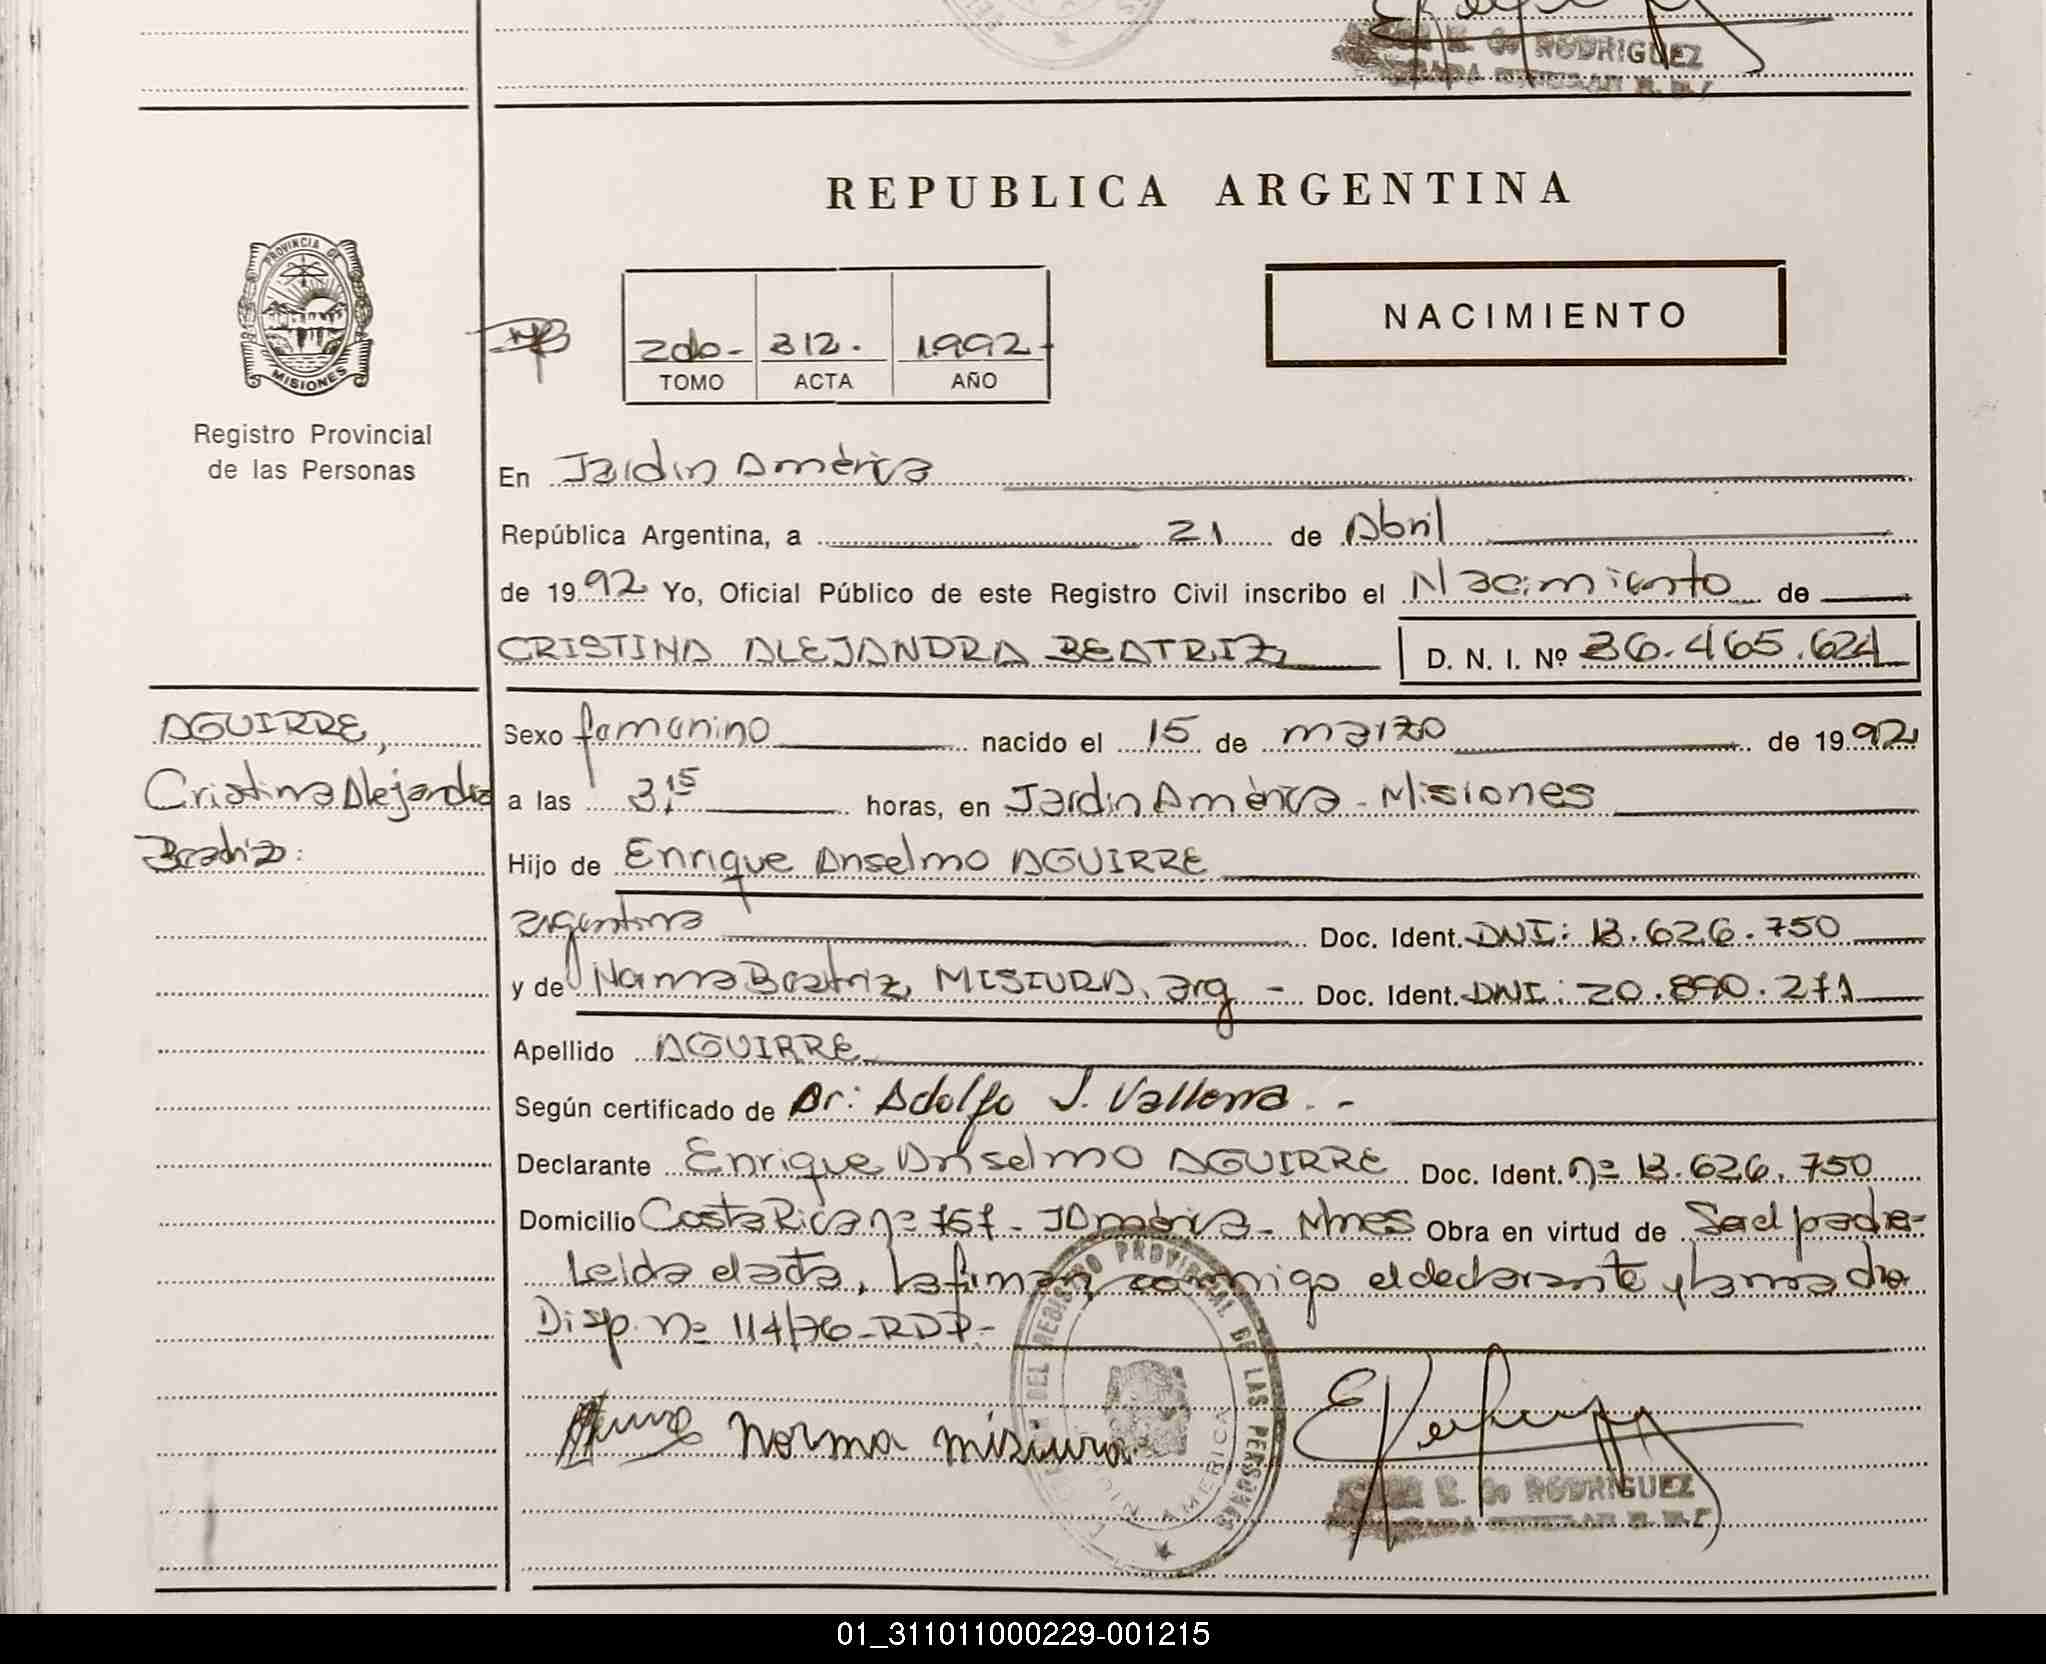 RODRIGUEZ
REPUBLICA ARGENTINA
PROVINCIA DE
MISIONES
Registro Provincial
de las Personas
2do- 312. 1992-
TOMO ACTA AÑO
NACIMIENTO
En Jardin América
República Argentina, a 21 de Abril
de 1992 Yo, Oficial Público de este Registro Civil inscribo el Nacimiento de
CRISTINA ALEJANDRA BEATRIZ D. N. I. Nº 36.465.624
AGUIRRE,
Cristina Alejandra
Beatriz:
Sexo femenino nacido el 15 de marzo de 1992
a las 3,15 horas, en Jardin América - Misiones
Hijo de Enrique Anselmo AGUIRRE
argentina Doc. Ident. DNI: 13.626.750
y de Norma Beatriz MISIURA, arg - Doc. Ident. DNI: 20.890.271
Apellido AGUIRRE
Según certificado de Dr: Adolfo J. . -
Declarante Enrique Anselmo AGUIRRE Doc. Ident. nº 13.626.750
Domicilio Costa Rica nº 757 - J América - Mnes Obra en virtud de Ser el padre-
Leida el acta, la firman conmigo el declarante y la madre
Disp. nº 114/76-RDP-
Norma Misiura
DEL REGISTRO PROVINCIAL DE LAS PERSONAS
AMERICA
RODRIGUEZ
01_311011000229-001215